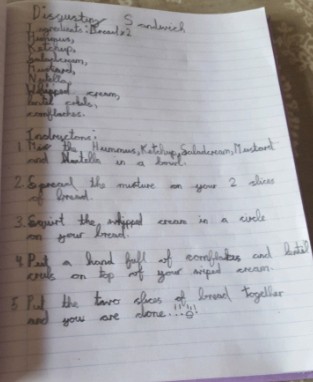 Disgusting Sandwich
Ingredients: Bread x2
Hummus,
Ketchup,
Saladcream,
Mustard,
Nutella,
Whipped cream,
cornflackes.
Instructions:
1. Mix the Hummus, Ketchup, Saladcream, Mustard
and Nutella in a bowl.
2. Spread the mixture on your 2 slices
of bread.
3. Squirt the whipped cream in a circle
on your bread.
4. Put a hand full of cornflakes and
on top of your wiped cream.
5 Put the two slices of bread together
and you are done...!